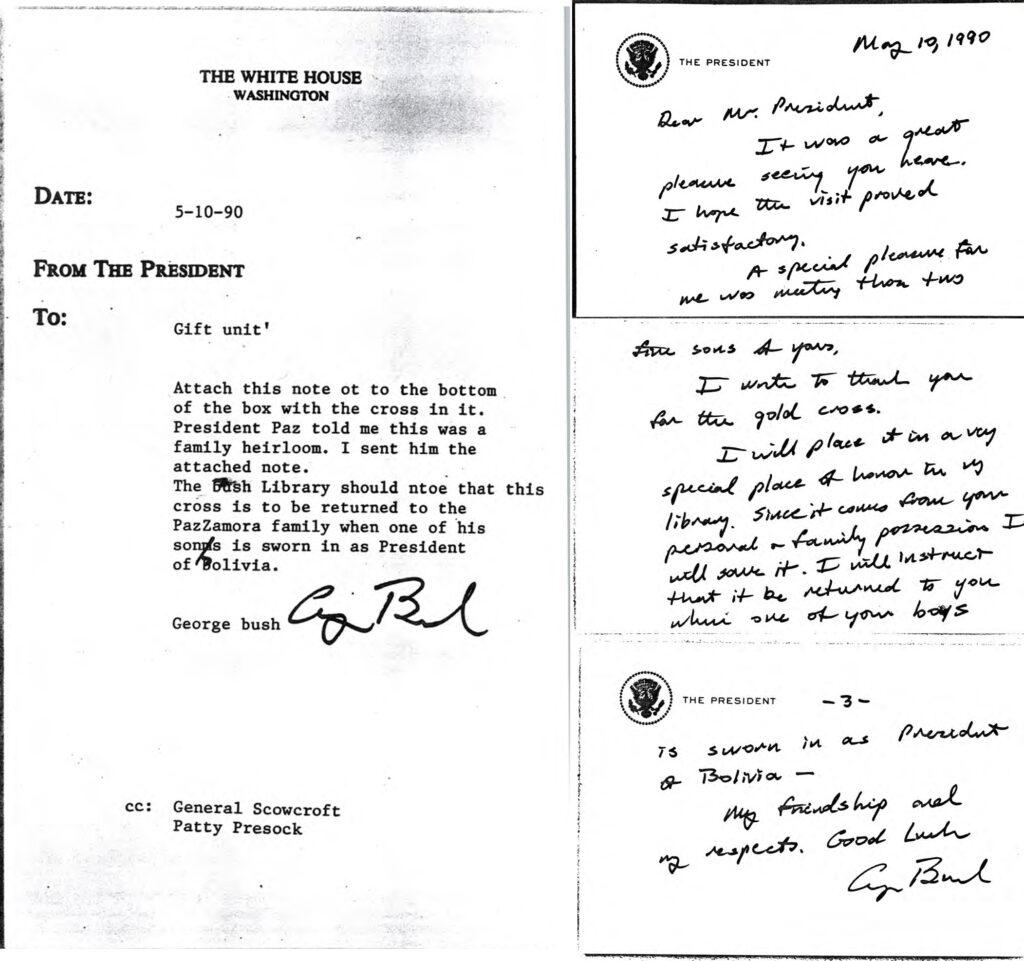 THE WHITE HOUSE
WASHINGTON
DATE:
5-10-90
FROM THE PRESIDENT
TO:
Gift unit'
Attach this note ot to the bottom
of the box with the cross in it.
President Paz told me this was a
family heirloom. I sent him the
attached note.
The Bush Library should ntoe that this
cross is to be returned to the
PazZamora family when one of his
sons is sworn in as President
of Bolivia.
George bush
G Bush
cc: General Scowcroft
Patty Presock
THE PRESIDENT
May 10, 1990
Dear Mr. President,
It was a great
pleasure seeing you here.
I hope the visit proved
satisfactory.
A special pleasure for
me was meeting those two
fine sons of yours.
I write to thank you
for the gold cross.
I will place it in a very
special place of honor in my
library. Since it comes from your
personal family possession I
will save it. I will instruct
that it be returned to you
when one of your boys
THE PRESIDENT
-3-
is sworn in as President
of Bolivia —
My friendship and
my respects. Good Luck
G Bush